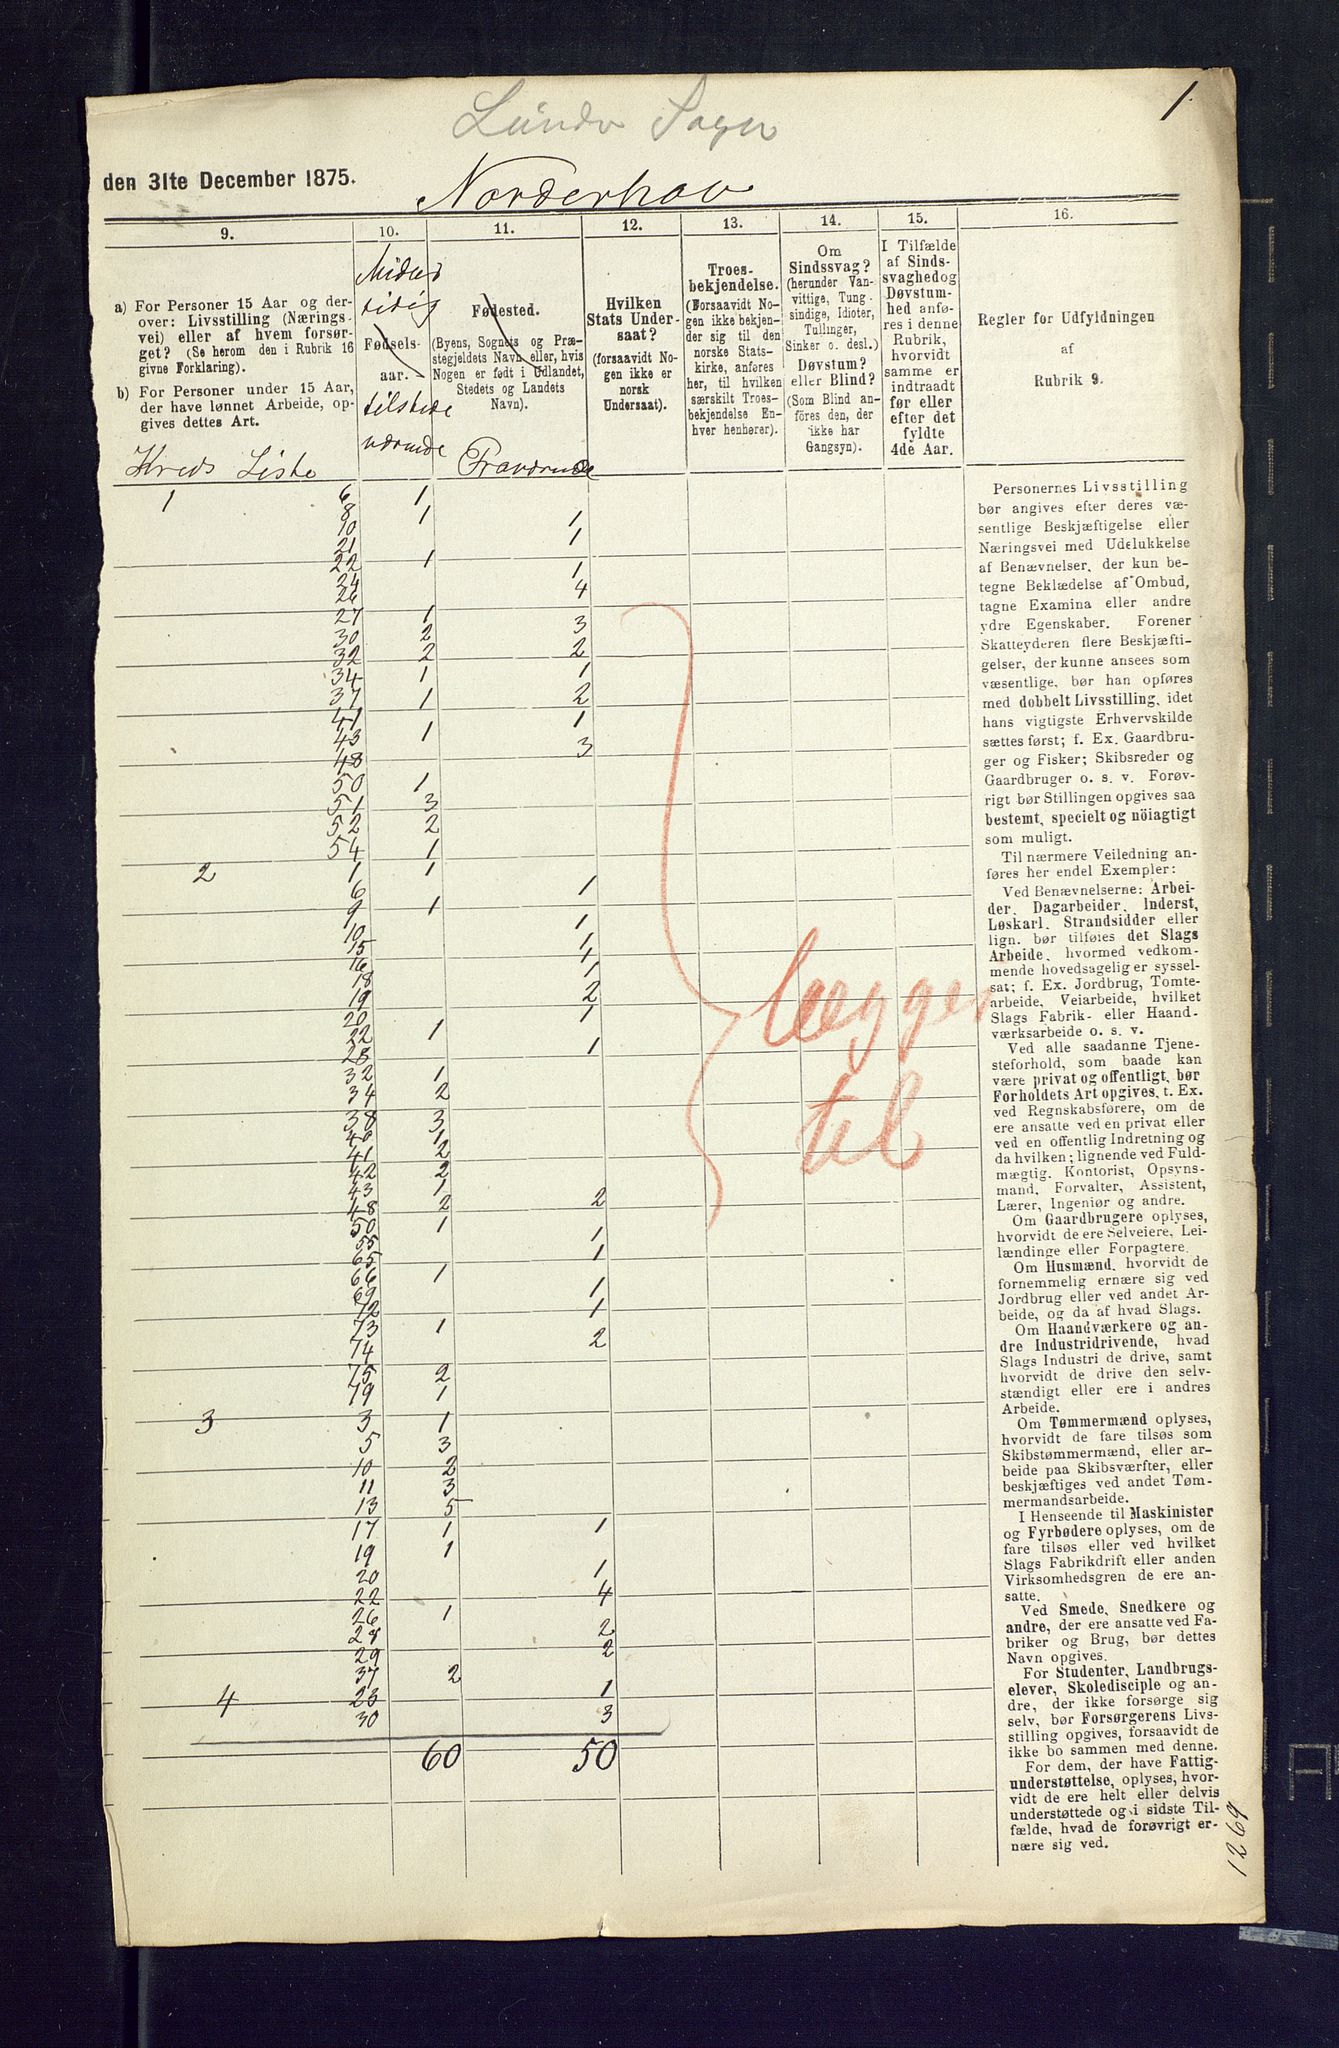 1.
Lunder Sogn
den 31te December 1875.
Norderhov
9.
10.
11.
12.
13.
14.
15.
16.
a) For Personer 15 Aar og der-
over: Livsstilling (Nærings-
vei) eller af hvem forsør-
get? (Se herom den i Rubrik 16
givne Forklaring).
b) For Personer under 15 Aar,
der have lønnet Arbeide, op-
gives dettes Art.
Kreds Liste
Midler
tidig
Fødsels-
aar.
tilstede
værende
Fødested.
(Byens, Sognets og Præ-
stegjeldets Navn eller, hvis
Nogen er født i Udlandet,
Stedets og Landets
Navn).
Fraværende
Hvilken
Stats Under-
saat?
(forsaavidt No-
gen ikke er
norsk
Undersaat).
Troes-
bekjendelse.
(Forsaavidt No-
gen ikke bekjen-
der sig til den
norske Stats-
kirke, anføres
her, til hvilken
særskilt Troes-
bekjendelse En-
hver henhører).
Om
Sindssvag?
(herunder Van-
vittige, Tung-
sindige, Idioter,
Tullinger,
Sinker o. desl.)
Døvstum?
eller Blind?
(Som Blind an-
føres den, der
ikke har
Gangsyn).
I Tilfælde
af Sinds-
svaghed og
Døvstum-
hed anfø-
res i denne
Rubrik,
hvorvidt
samme er
indtraadt
før eller
efter det
fyldte
4de Aar.
Regler for Udfyldningen
af
Rubrik 9.
1 6 1
8 1 1
10
21 1
22 1
24 1
26 4
27 1
30 2 3
32 2 2
34 1 1
37 1 2
41 1
43 1
48 3
50 1
51 3
52 2
54 1
2 1 1
6 1
9 1
10 1
15 1
16 1
18 2
19 1
20
22 1
28 1
32 1
34 2
38 3
40 1
41 2
42 2
43 1
48 2 2
50 1
55 1
65 1
66 1
69 1
72 1
73 1
74 2
75 2
79 1
3 3 1
5 3
10 2
11 3
13 5
17 1 1
19 1
20 1
22 4
26 1
28 2
29 2
37 2
4 23 1
30 3
60 50
lægges
til
Personernes Livsstilling
bør angives efter deres væ-
sentlige Beskjæftigelse eller
Næringsvei med Udelukkelse
af Benævnelser, der kun be-
tegne Beklædelse af Ombud,
tagne Examina eller andre
ydre Egenskaber. Forener
Skatteyderen flere Beskjæfti-
gelser, der kunne ansees som
væsentlige, bør han opføres
med dobbelt Livsstilling, idet
hans vigtigste Erhvervskilde
sættes først; f. Ex. Gaardbru-
ger og Fisker; Skibsreder og
Gaardbruger o. s. v. Forøv-
rigt bør Stillingen opgives saa
bestemt, specielt og nöiagtigt
som muligt.
Til nærmere Veiledning an-
føres her endel Exempler:
Ved Benævnelserne: Arbei-
der, Dagarbeider, Inderst,
Løskarl, Strandsidder eller
lign. bør tilføies det Slags
Arbeide, hvormed vedkom-
mende hovedsagelig er syssel-
sat; f. Ex. Jordbrug, Tomte-
arbeide, Veiarbeide, hvilket
Slags Fabrik- eller Haand-
værksarbeide o. s. v.
Ved alle saadanne Tjene-
steforhold, som baade kan
være privat og offentligt, bør
Forholdets Art opgives, t. Ex.
ved Regnskabsførere, om de
ere ansatte ved en privat eller
ved en offentlig Indretning og
da hvilken; lignende ved Fuld-
mægtig, Kontorist, Opsyns-
mand, Forvalter, Assistent,
Lærer, Ingeniør og andre.
Om Gaardbrugere oplyses,
hvorvidt de ere Selveiere, Lei-
lændinge eller Forpagtere.
Om Husmænd, hvorvidt de
fornemmelig ernære sig ved
Jordbrug eller ved andet Ar-
beide, og da af hvad Slags.
Om Haandværkere og an-
dre Industridrivende, hvad
Slags Industri de drive, samt
hvorvidt de drive den selv-
stændigt eller ere i andres
Arbeide.
Om Tømmermænd oplyses,
hvorvidt de fare tilsøs som
Skibstømmermænd, eller ar-
beide paa Skibsværfter, eller
beskjæftiges ved andet Tøm-
mermandsarbeide.
I Henseende til Maskinister
og Fyrbødere oplyses, om de
fare tilsøs eller ved hvilket
Slags Fabrikdrift eller anden
Virksomhedsgren de ere an-
satte.
Ved Smede, Snedkere og
andre, der ere ansatte ved Fa-
briker og Brug, bør dettes
Navn opgives.
For Studenter, Landbrugs-
elever, Skoledisciple og an-
dre, der ikke forsørge sig
selv, bør Forsørgerens Livs-
stilling opgives, forsaavidt de
ikke bo sammen med denne.
For dem, der have Fattig-
understøttelse, oplyses, hvor-
vidt de ere helt eller delvis
understøttede og i sidste Til-
fælde, hvad de forøvrigt er-
nære sig ved.
1269